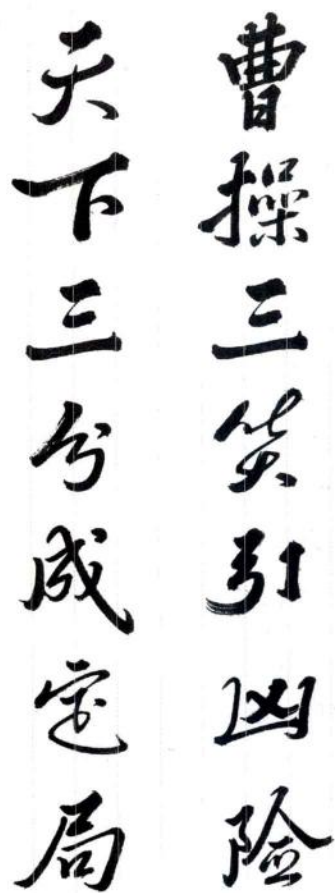 曹操三笑引凶险
天下三分成定局